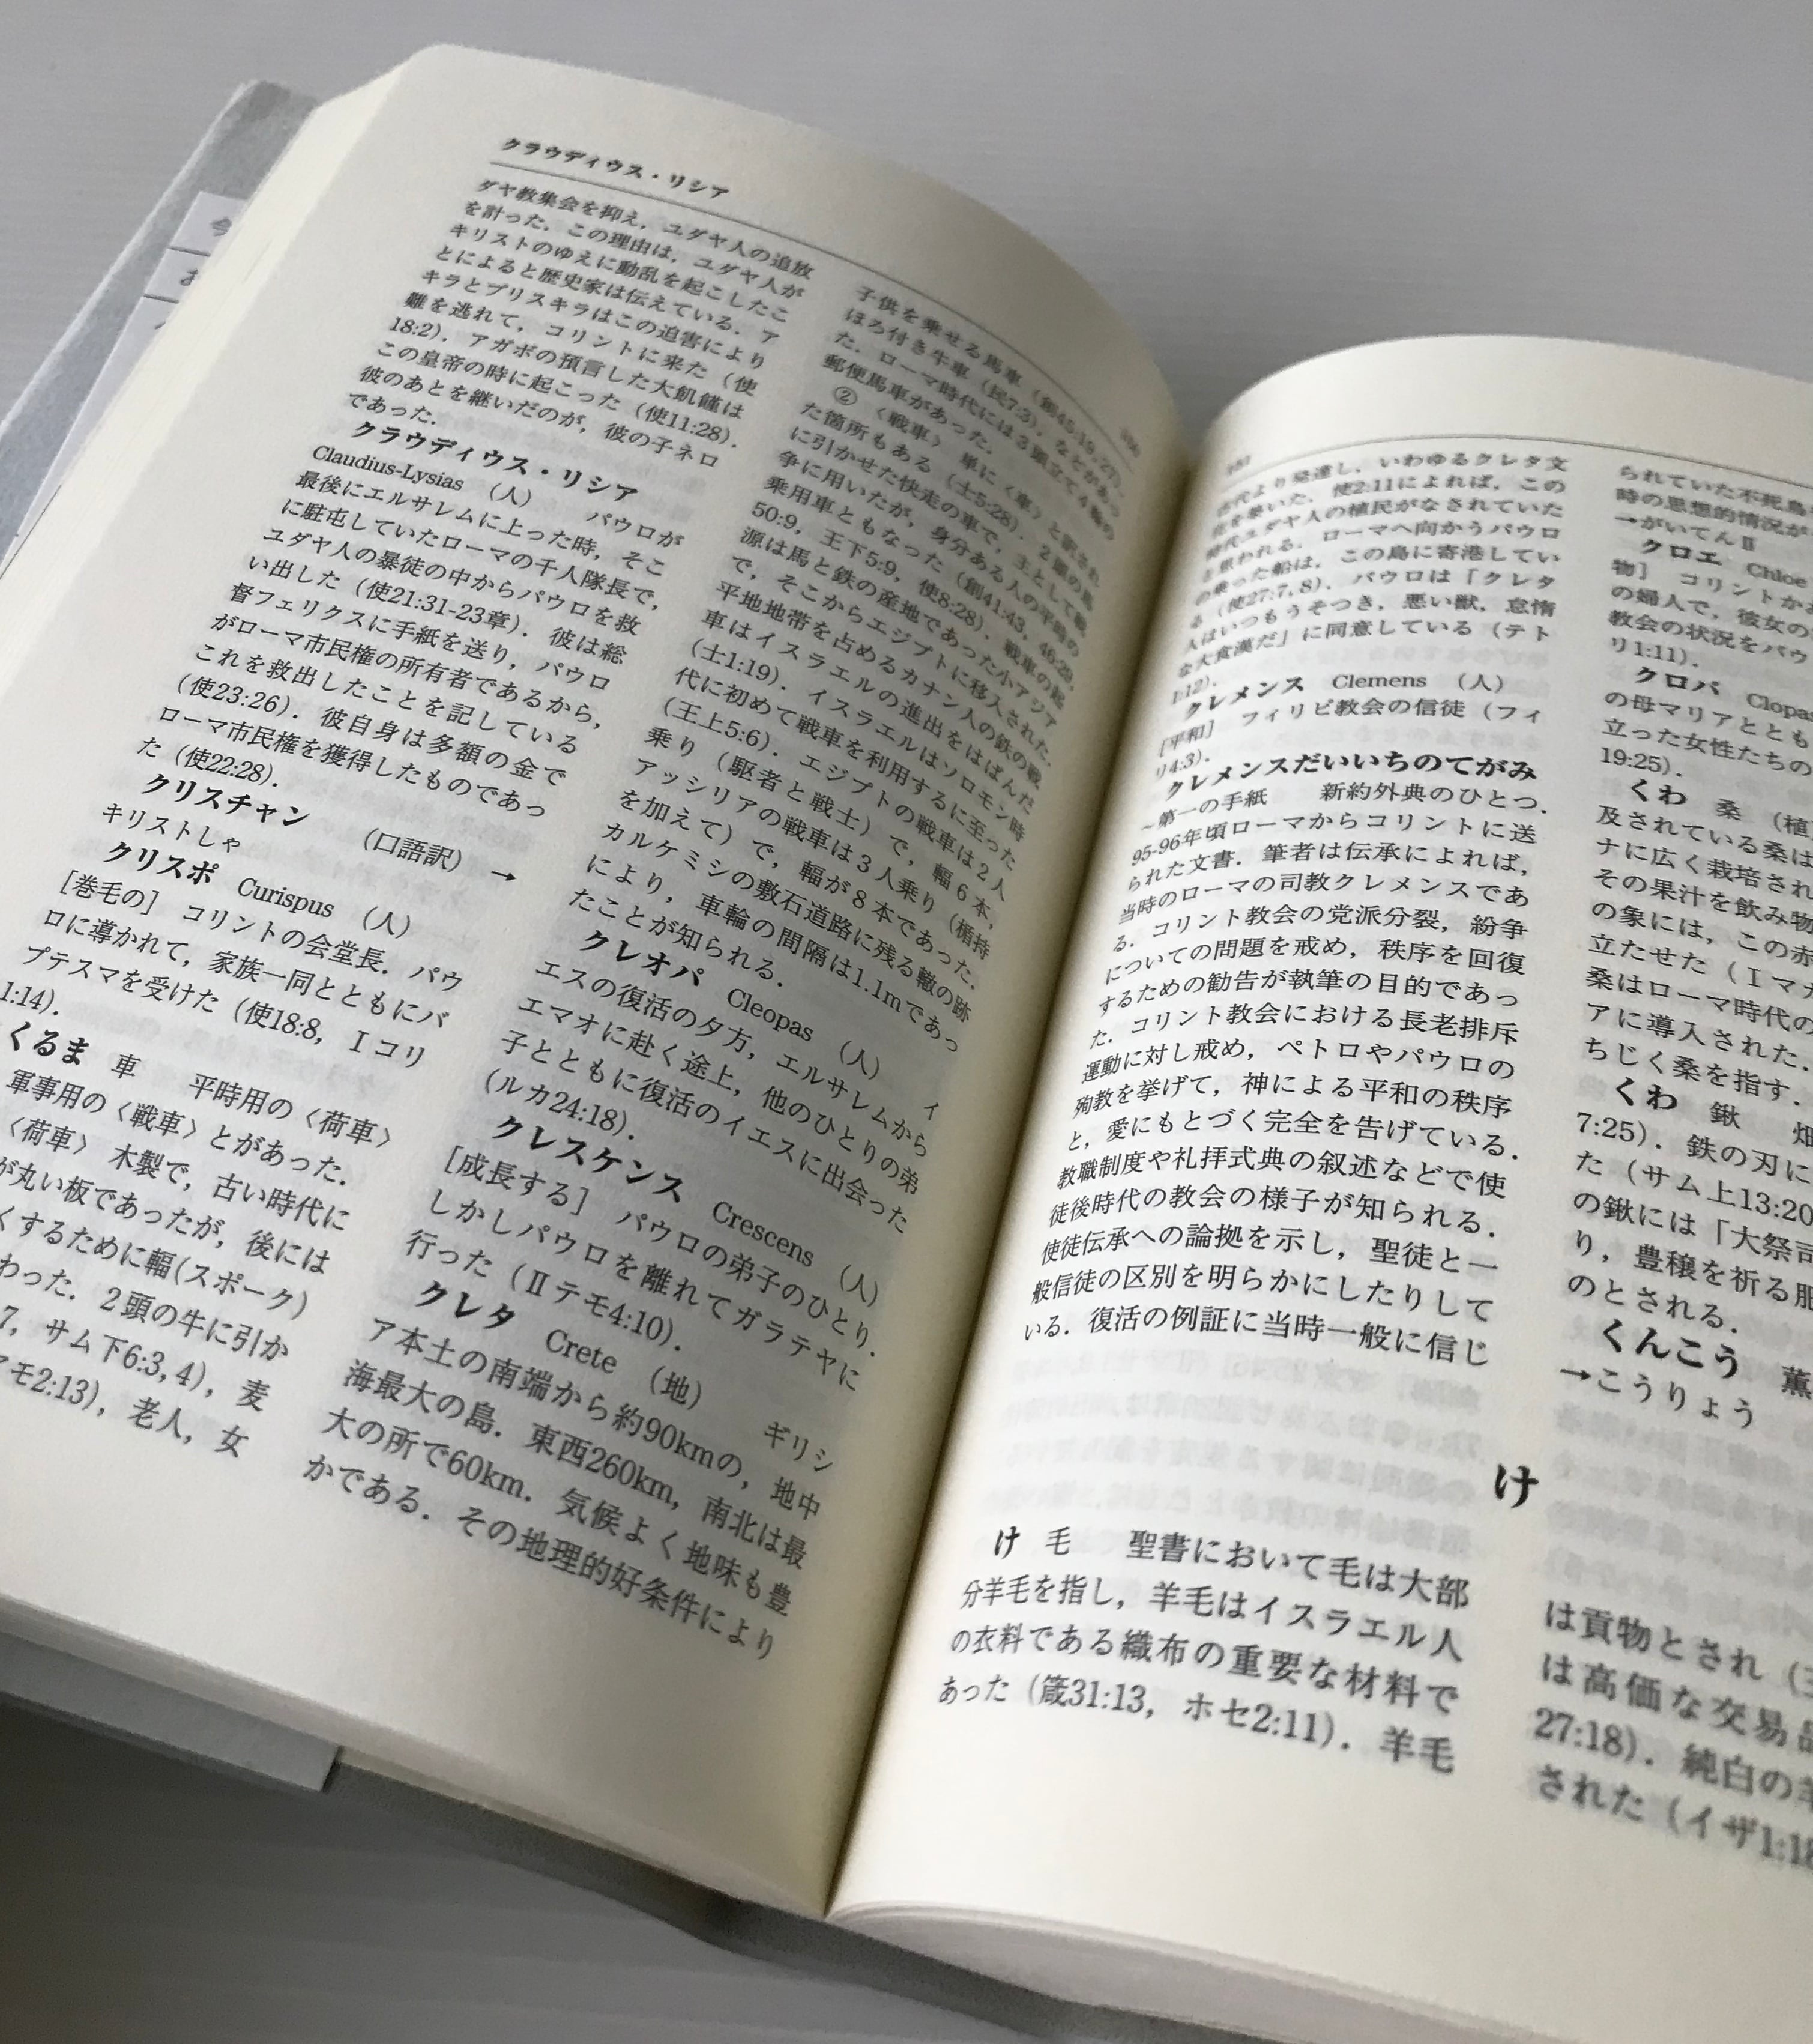 クラウディウス・リシア
ダヤ教集会を抑え，ユダヤ人の追放
を計った．この理由は，ユダヤ人が
キリストのゆえに動乱を起こしたこ
とによると歴史家は伝えている．ア
キラとプリスキラはこの迫害により
難を逃れて，コリントに来た（使
18:2）．アガボの預言した大飢饉は
この皇帝の時に起こった（使11:28）．
彼のあとを継いだのが，彼の子ネロ
であった．
クラウディウス・リシア
Claudius-Lysias （人） パウロが
最後にエルサレムに上った時，そこ
に駐屯していたローマの千人隊長で，
ユダヤ人の暴徒の中からパウロを救
い出した（使21:31-23章）．彼は総
督フェリクスに手紙を送り，パウロ
がローマ市民権の所有者であるから，
これを救出したことを記している
（使23:26）．彼自身は多額の金で
ローマ市民権を獲得したものであっ
た（使22:28）．
クリスチャン （口語訳）→
キリストしゃ
クリスポ Curispus （人）
［巻毛の］ コリントの会堂長．パウ
ロに導かれて，家族一同とともにバ
プテスマを受けた（使18:8，Ⅰコリ
1:14）．
くるま 車 平時用の〈荷車〉
軍事用の〈戦車〉とがあった．
〈荷車〉 木製で，古い時代に
が丸い板であったが，後には
くするために輻(スポーク)
わった．2頭の牛に引か
7，サム下6:3, 4），麦
モ2:13），老人，女
子供を乗せる馬車（創45:19, 27），
ほろ付き牛車（民7:3）などがあっ
た．ローマ時代には3頭立て4輪の
郵便馬車があった．
② 〈戦車〉 単に〈車〉と訳され
た箇所もある（士5:28）．2頭の馬
に引かせた快走の車で，主として戦
争に用いたが，身分ある人の平時の
乗用車ともなった（創41:43, 46:29,
50:9，王下5:9，使8:28）．戦車の起
源は馬と鉄の産地であった小アジア
で，そこからエジプトに移入された．
平地地帯を占めるカナン人の鉄の戦
車はイスラエルの進出をはばんだ
（士1:19）．イスラエルはソロモン時
代に初めて戦車を利用するに至った
（王上5:6）．エジプトの戦車は2人
乗り（駆者と戦士）で，輻6本，
アッシリアの戦車は3人乗り（楯持
を加えて）で，輻が8本であった．
カルケミシの敷石道路に残る轍の跡
により，車輪の間隔は1.1mであっ
たことが知られる．
クレオパ Cleopas （人） イ
エスの復活の夕方，エルサレムから
エマオに赴く途上，他のひとりの弟
子とともに復活のイエスに出会った
（ルカ24:18）．
クレスケンス Crescens （人）
［成長する］ パウロの弟子のひとり．
しかしパウロを離れてガラテヤに
行った（Ⅱテモ4:10）．
クレタ Crete （地） ギリシ
ア本土の南端から約90kmの，地中
海最大の島．東西260km，南北は最
大の所で60km．気候よく地味も豊
かである．その地理的好条件により
古代より発達し，いわゆるクレタ文
化を築いた．使2:11によれば，この
時代ユダヤ人の植民がなされていた
と思われる．ローマへ向かうパウロ
の乗った船は，この島に寄港してい
る（使27:7, 8）．パウロは「クレタ
人はいつもうそつき，悪い獣，怠惰
な大食漢だ」に同意している（テト
1:12）．
クレメンス Clemens （人）
［平和］ フィリピ教会の信徒（フィ
リ4:3）．
クレメンスだいいちのてがみ
～第一の手紙 新約外典のひとつ．
95-96年頃ローマからコリントに送
られた文書．筆者は伝承によれば，
当時のローマの司教クレメンスであ
る．コリント教会の党派分裂，紛争
についての問題を戒め，秩序を回復
するための勧告が執筆の目的であっ
た．コリント教会における長老排斥
運動に対し戒め，ペトロやパウロの
殉教を挙げて，神による平和の秩序
と，愛にもとづく完全を告げている．
教職制度や礼拝式典の叙述などで使
徒後時代の教会の様子が知られる．
使徒伝承への論拠を示し，聖徒と一
般信徒の区別を明らかにしたりして
いる．復活の例証に当時一般に信じ
られていた不死鳥
時の思想的情況が
→がいてんⅡ
クロエ Chloe
物］ コリントか
の婦人で，彼女の
教会の状況をパウ
リ1:11）．
クロパ Clopas
の母マリアととも
立った女性たちの
19:25）．
くわ 桑 （植
及されている桑は
ナに広く栽培され
その果汁を飲み物
の象には，この赤
立たせた（Ⅰマカ
桑はローマ時代の
アに導入された．
ちじく桑を指す．
くわ 鍬 畑
7:25）．鉄の刃に
た（サム上13:20
の鍬には「大祭司
り，豊穣を祈る
のとされる．
くんこう 薫
→こうりょう
け
け 毛 聖書において毛は大部
分羊毛を指し，羊毛はイスラエル人
の衣料である織布の重要な材料で
あった（箴31:13，ホセ2:11）．羊毛
は貢物とされ（王
は高価な交易品
27:18）．純白の羊
された（イザ1:18